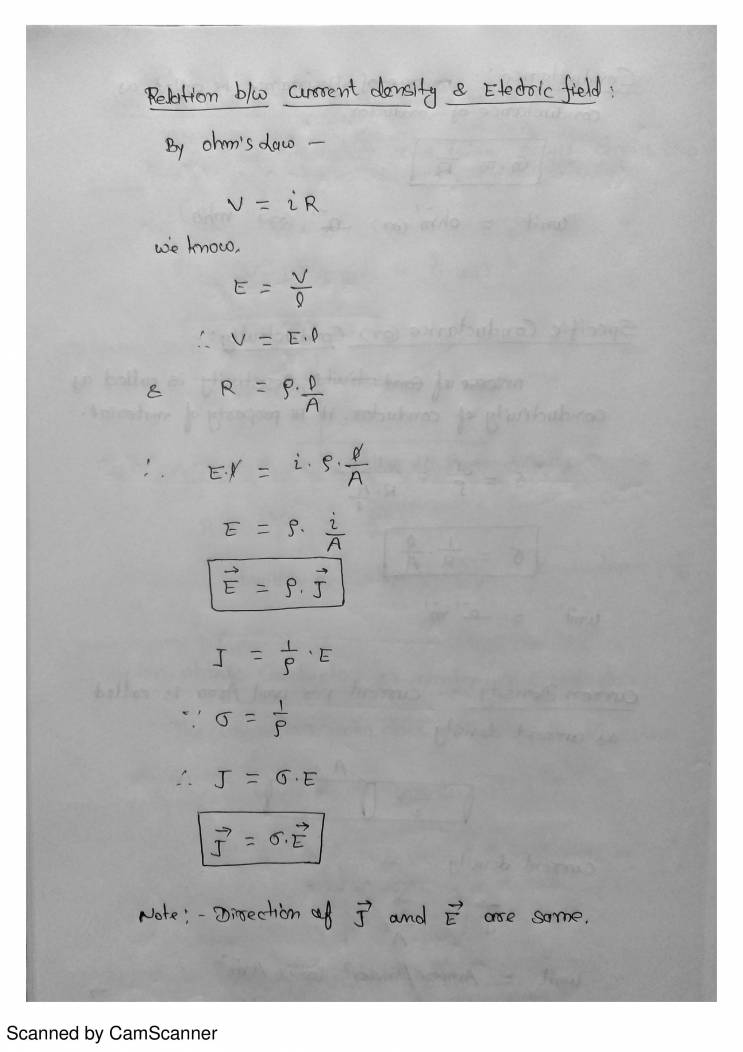 Relation b/w Current density & Electric field :
By ohm's Law —
V = i R
we know,
E = V/l
∴ V = E.l
& R = ρ. l/A
∴ E.l = i. ρ. l/A
E = ρ. i/A
E⃗ = ρ. J⃗
J = 1/ρ . E
∵ σ = 1/ρ
∴ J = σ.E
J⃗ = σ.E⃗
Note: - Direction of J⃗ and E⃗ are same.
Scanned by CamScanner